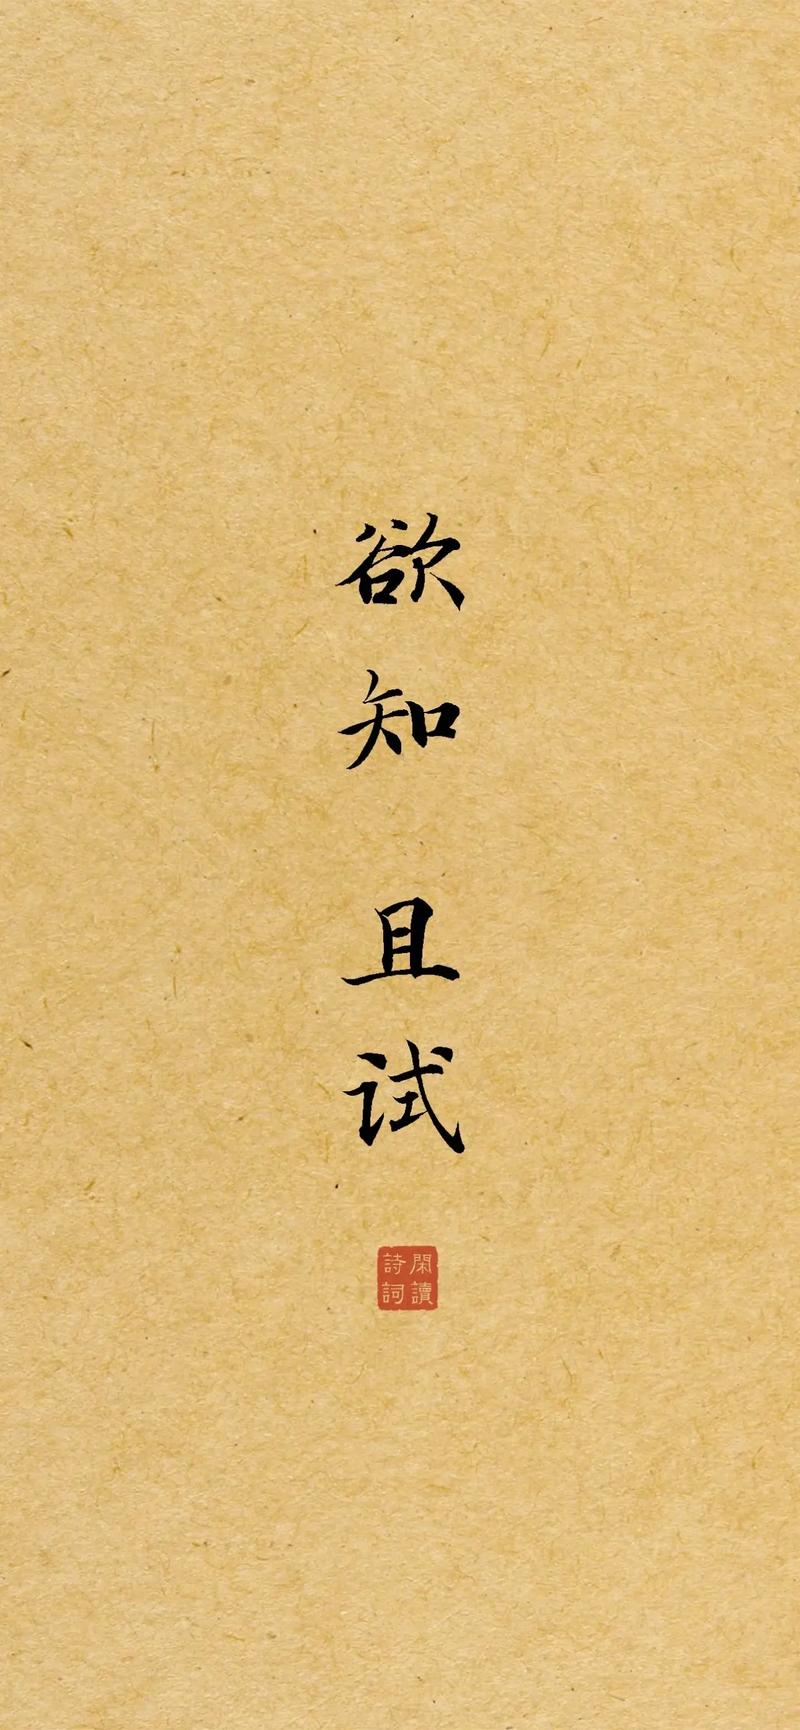 欲知 且试
閑讀
詩詞